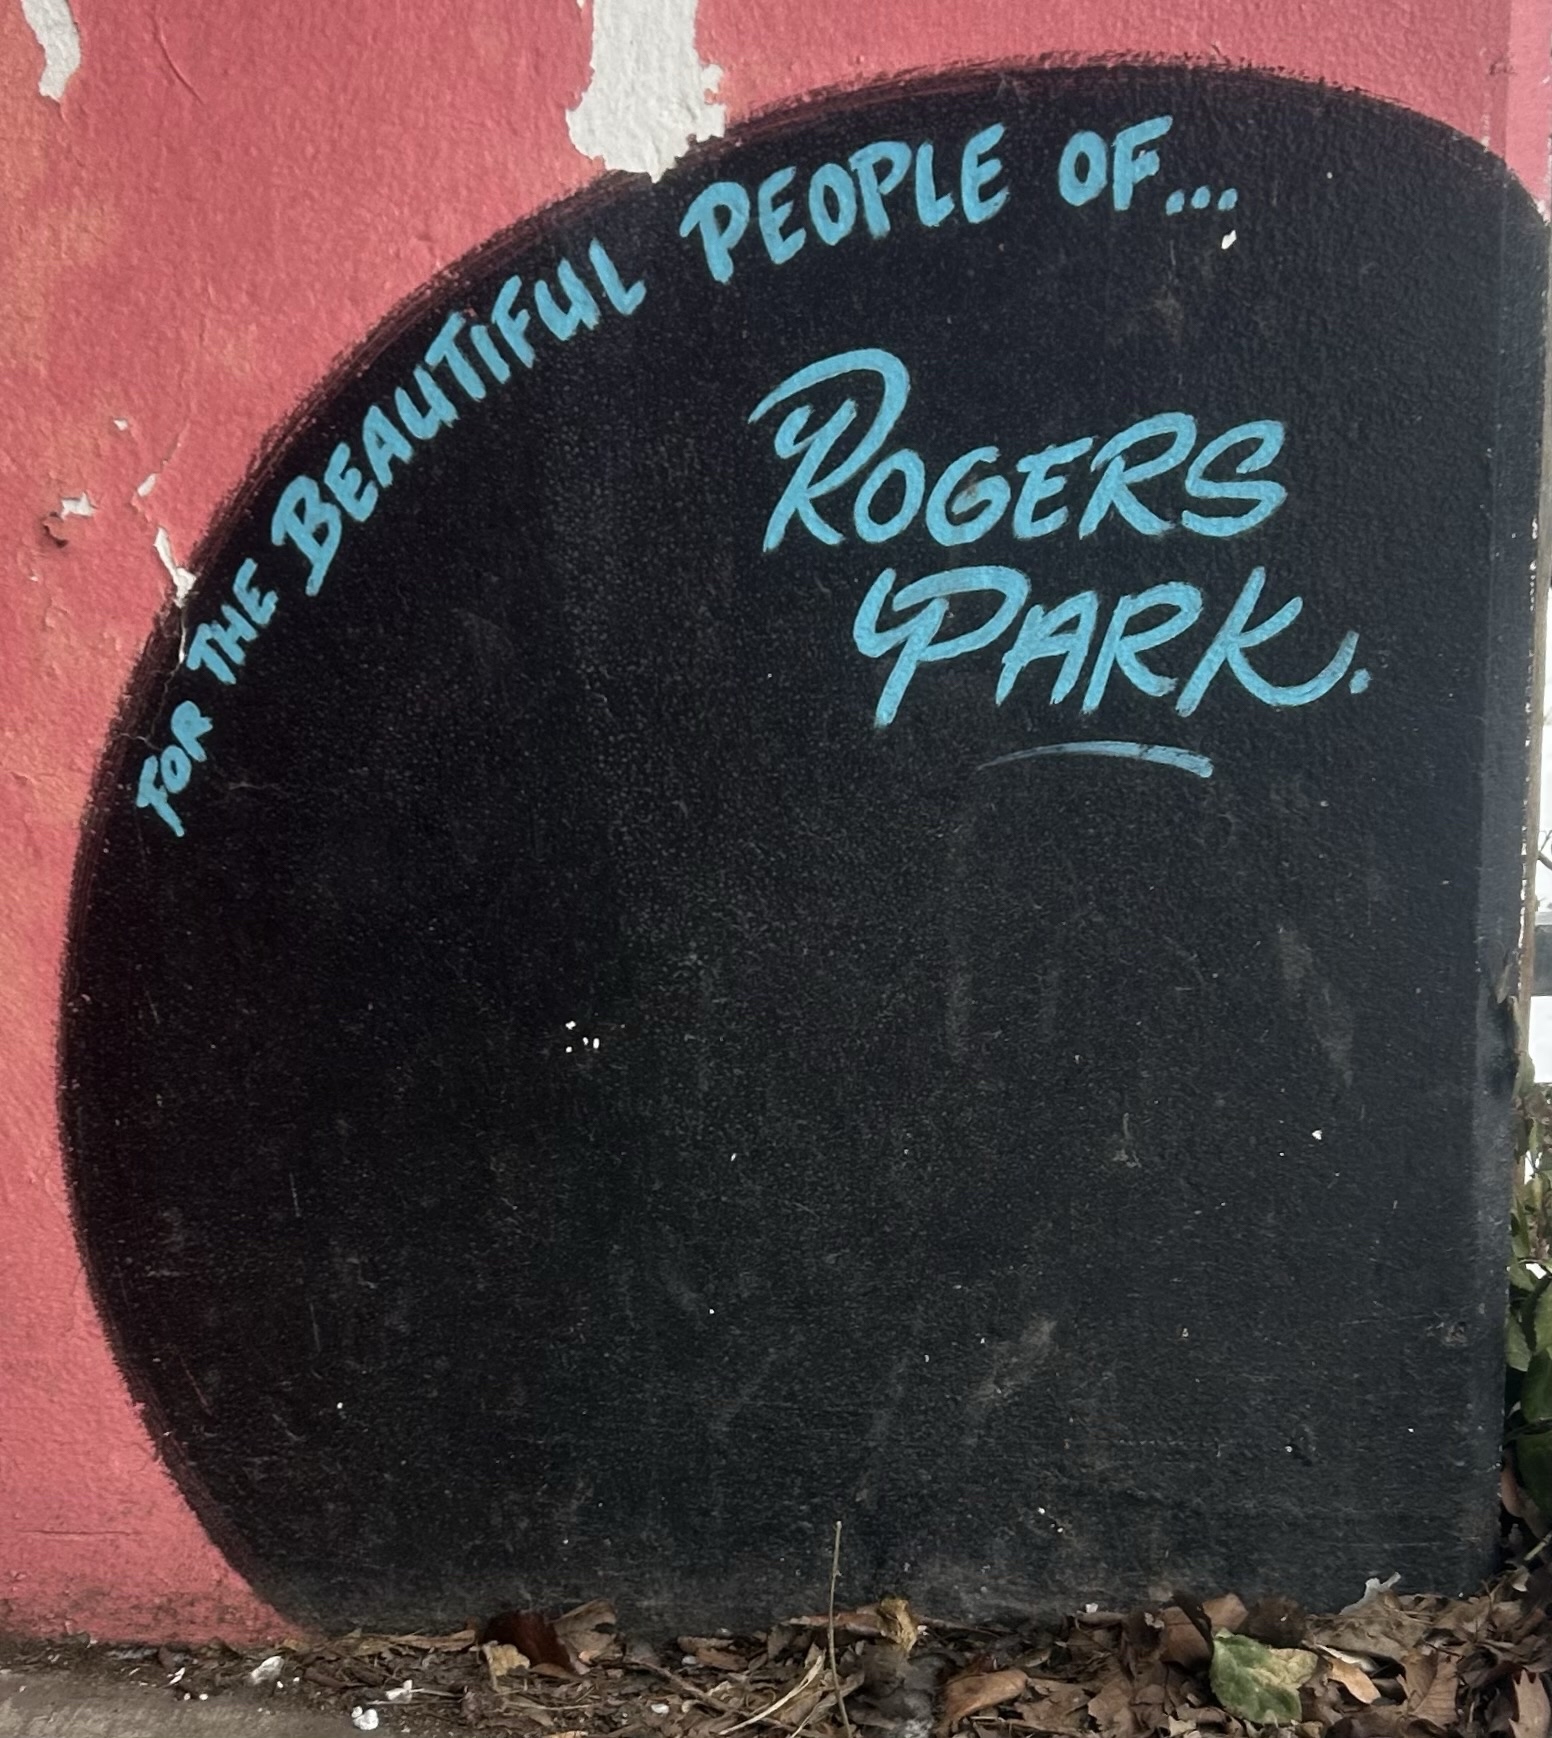 FOR THE BEAUTIFUL PEOPLE OF...
ROGERS
PARK.